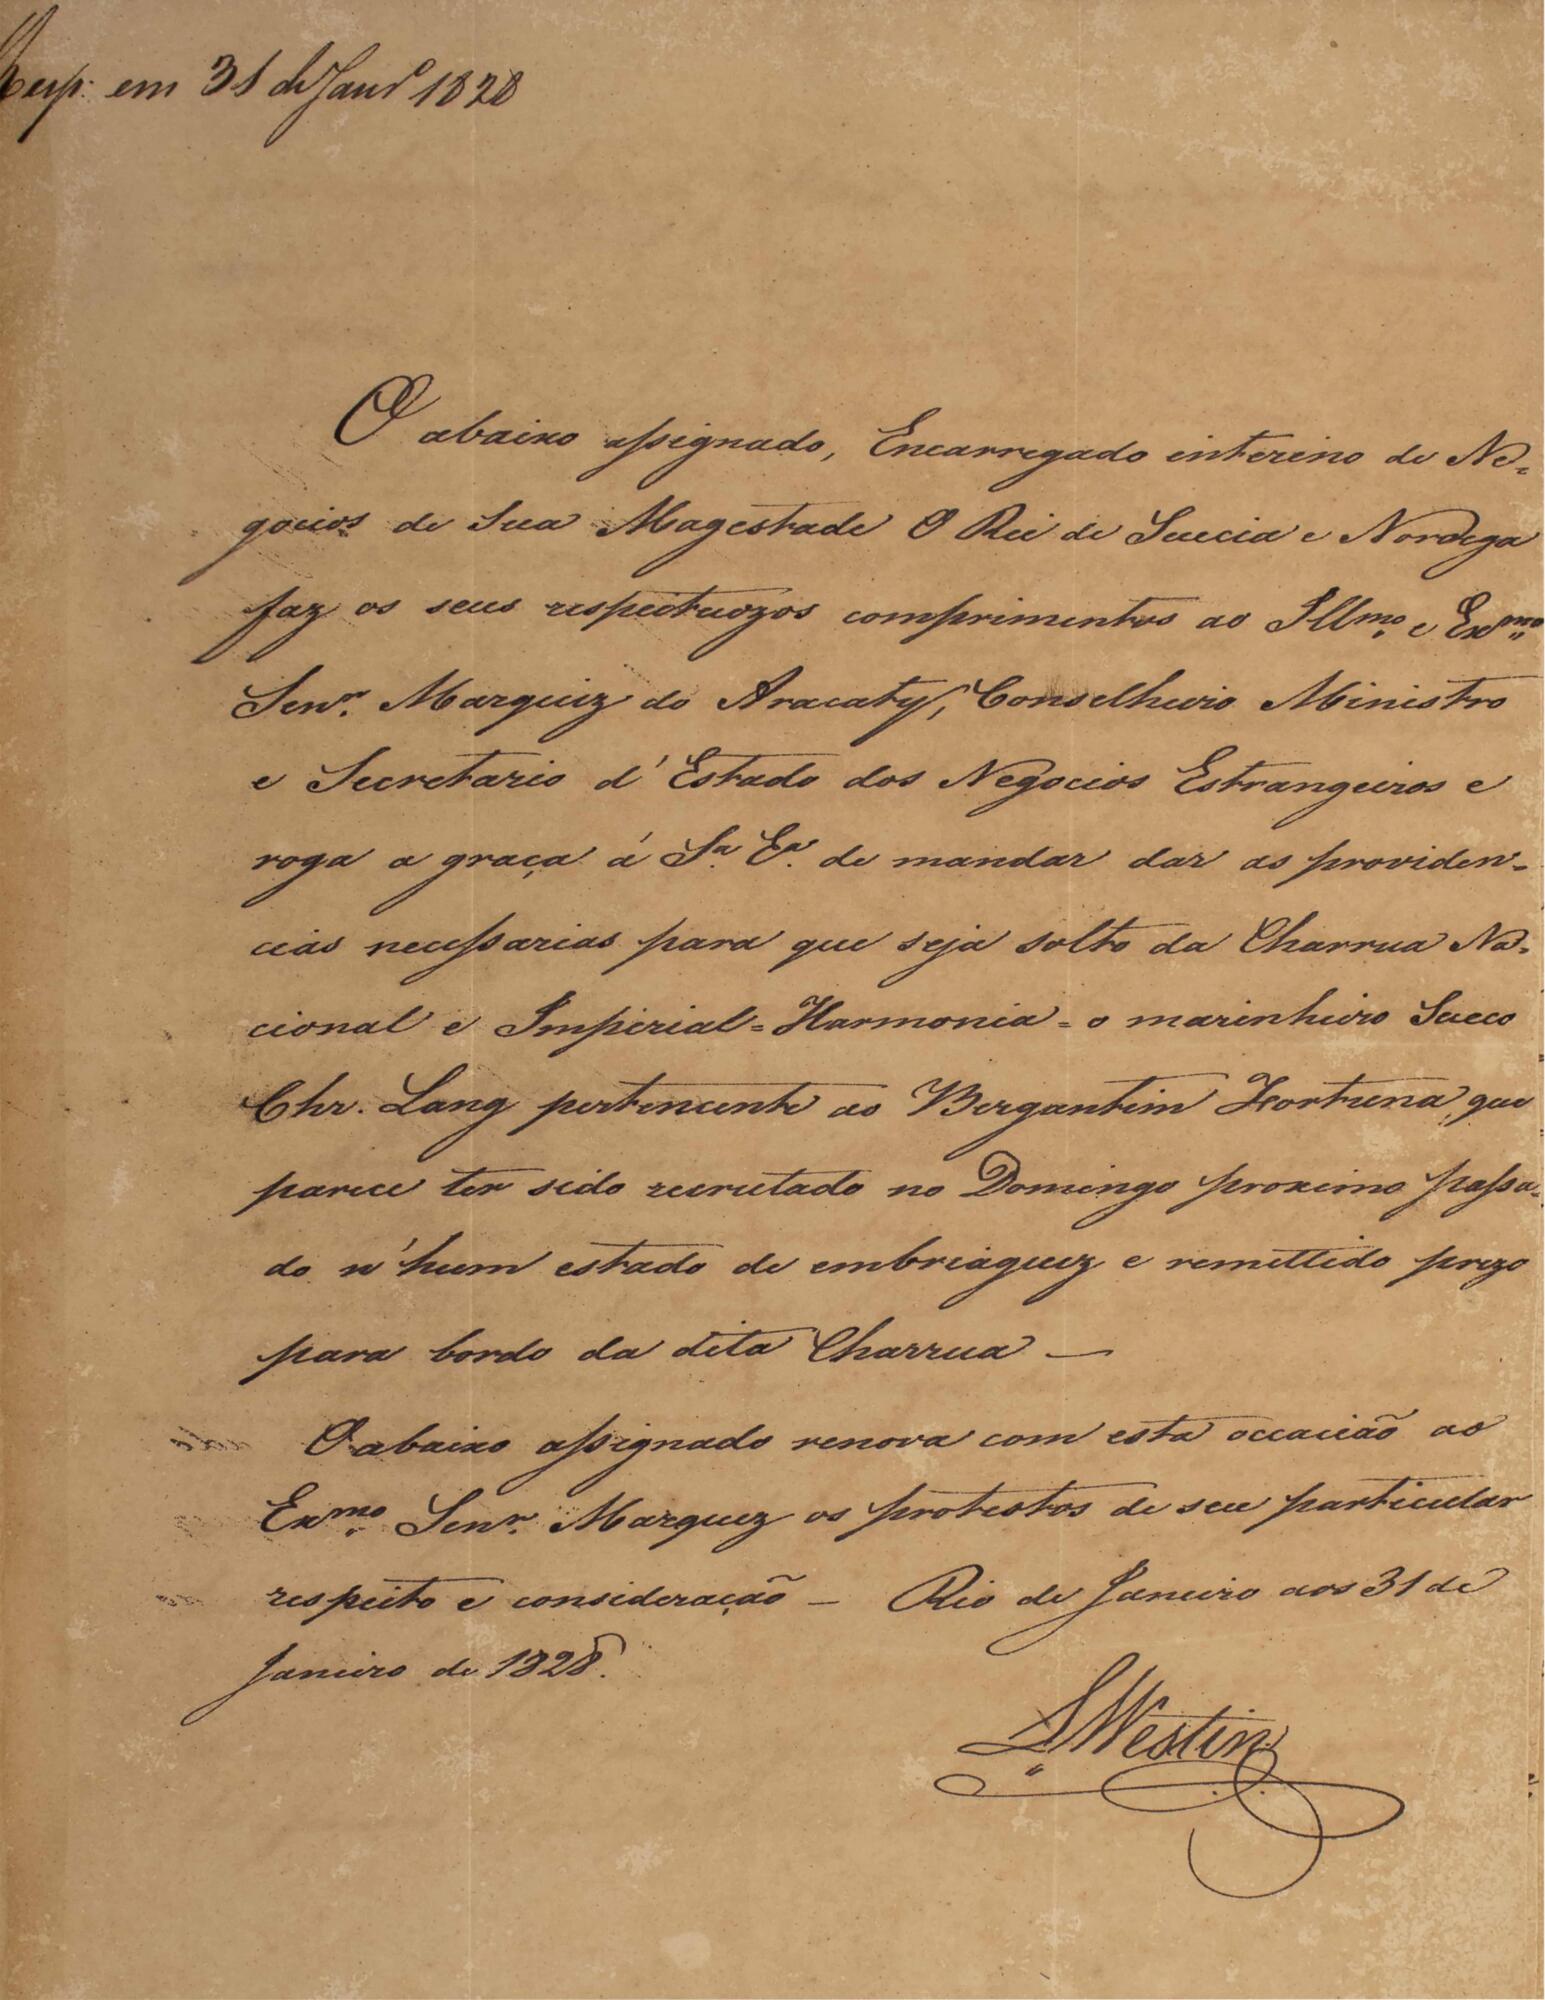 Resp. em 31 de Janrº 1828
O abaixo assignado, Encarregado interino de Ne-
gocios de Sua Magestade O Rei de Suecia e Nordega
faz os seus respeituozos comprimentos ao Illmo. e Exmo.
Senr. Marquez do Aracaty, Conselheiro Ministro
e Secretario d'Estado dos Negocios Estrangeiros e
roga a graça á Sa. Ea. de mandar dar as providen-
cias necessarias para que seja solto da Charrua Na-
cional e Imperial = Harmonia = o marinheiro Sueco
Chr. Lang pertencente ao Bergantim Fortuna, que
parece ter sido recrutado no Domingo proximo passa-
do n'hum estado de embriaguez e remettido prezo
para bordo da dita Charrua —
O abaixo assignado renova com esta occasião ao
Exmo. Senr. Marquez os protestos de seu particular
respeito e consideração — Rio de Janeiro aos 31 de
Janeiro de 1828.
L Westin